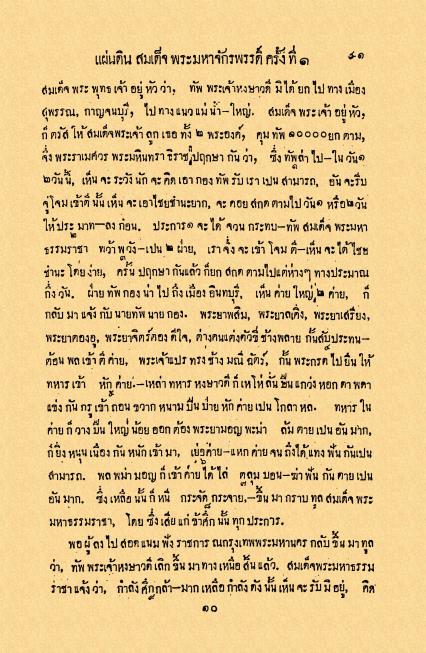 แผ่นดิน สมเด็จ พระมหาจักรพรรดิ์ ครั้งที่ ๑ ๙๑
สมเด็จ พระ พุทธ เจ้า อยู่ หัว ว่า, ทัพ พระเจ้าหงษาวดี มิ ได้ ยก ไป ทาง เมือง
สุพรรณ, กาญจนบุรี, ไป ทาง แนว แม่ น้ำ–ใหญ่. สมเด็จ พระ เจ้า อยู่ หัว,
ก็ ตรัส ให้ สมเด็จพระเจ้า ลูก เธอ ทั้ง ๒ พระองค์, คุม ทัพ ๑๐๐๐๐ยก ตาม,
จึ่ง พระราเมศวร พระมหินทรา ธิราช ปฤกษา กัน ว่า, ซึ่ง ทัพล่า ไป–ใน วัน๑
๒วันนี้, เห็น จะ ระวัง นัก จะ คิด เอา กอง ทัพ รับ เรา เปน สามารถ. อัน จะรีบ
จู่โจม เข้า ตี นั้น เห็น จะ เอาไชยชำนะยาก, จะ คอย สกด ตามไป วัน๑ หรือ๒วัน
ให้ประ มาท–ลง ก่อน. ประการ๑ จะ ได้ จวน กระทบ–ทัพ สมเด็จ พระมหา
ธรรมราชา ทว้า พว้ง–เปน ๒ ฝ่าย, เรา จึ่ง จะ เข้า โจม ตี–เห็น จะ ได้ ไชย
ชำนะ โดย ง่าย, ครั้น ปฤกษา กันแล้ว ก็ยก สกด ตามไปแต่ห่างๆ ทางประมาณ
กึ่ง วัน. ฝ่าย ทัพ กอง น่า ไป ถึง เมือง อินทบุรี, เห็น ค่าย ใหญ่ ๒ ค่าย, ก็
กลับ มา แจ้ง กับ นายทัพ นาย กอง. พระยาพสิม, พระยาตเคิ่ง, พระยาเสรียง,
พระยาตองอู, พระยาจิตรตอง ดีใจ, ต่างคนแต่งตัวขี่ ช้างพลาย กั้นสัปทน–
ต้อน พล เข้า ตี ค่าย, พระเจ้าแปร ทรง ช้าง มณี ฉัตร์, กั้น พระกรด ไป ยืน ให้
ทหาร เข้า หัก ค่าย.–เหล่า ทหาร หงษาวดี ก็ เหโห่ ลั่น ปืน แกว่ง หอก ดา พดา
แข่ง กัน กรู เข้า ถอน ขวาก หนาม ปืน ป่าย หัก ค่าย เปน โกลา หล. ทหาร ใน
ค่าย ก็ วาง ปืน ใหญ่ น้อย ออก ต้อง พระยามอญ พะม่า ล้ม ตาย เปน อัน มาก,
ก็ยิ่ง หนุน เนือง กัน หนัก เข้า มา, เย่อค่าย–แหก ค่าย จน ถึงได้ แทง ฟัน กันเปน
สามารถ. พล พม่า มอญ ก็ เข้า ค่าย ได้ ไล่ ตลุม บอน–ฆ่า ฟัน กัน ตาย เปน
อัน มาก. ซึ่ง เหลือ นั้น ก็ หนี กระจัด กระจาย.–ขึ้น มา กราบ ทูล สมเด็จ พระ
มหาธรรมราชา, โดย ซึ่ง เสีย แก่ ข้าศึก นั้น ทุก ประการ.
พอ ผู้ ลง ไป สอด แนม ฟัง ราชการ ณกรุงเทพพระมหานคร กลับ ขึ้น มา ทูล
ว่า, ทัพ พระเจ้าหงษาวดี เลิก ขึ้น มา ทาง เหนือ สิ้น แล้ว. สมเด็จพระมหาธรรม
ราชา แจ้ง ว่า, กำลัง ศึก กล้า–มาก เหลือ กำลัง ดัง นั้น เห็น จะ รับ มิ อยู่, คิด
๑๐